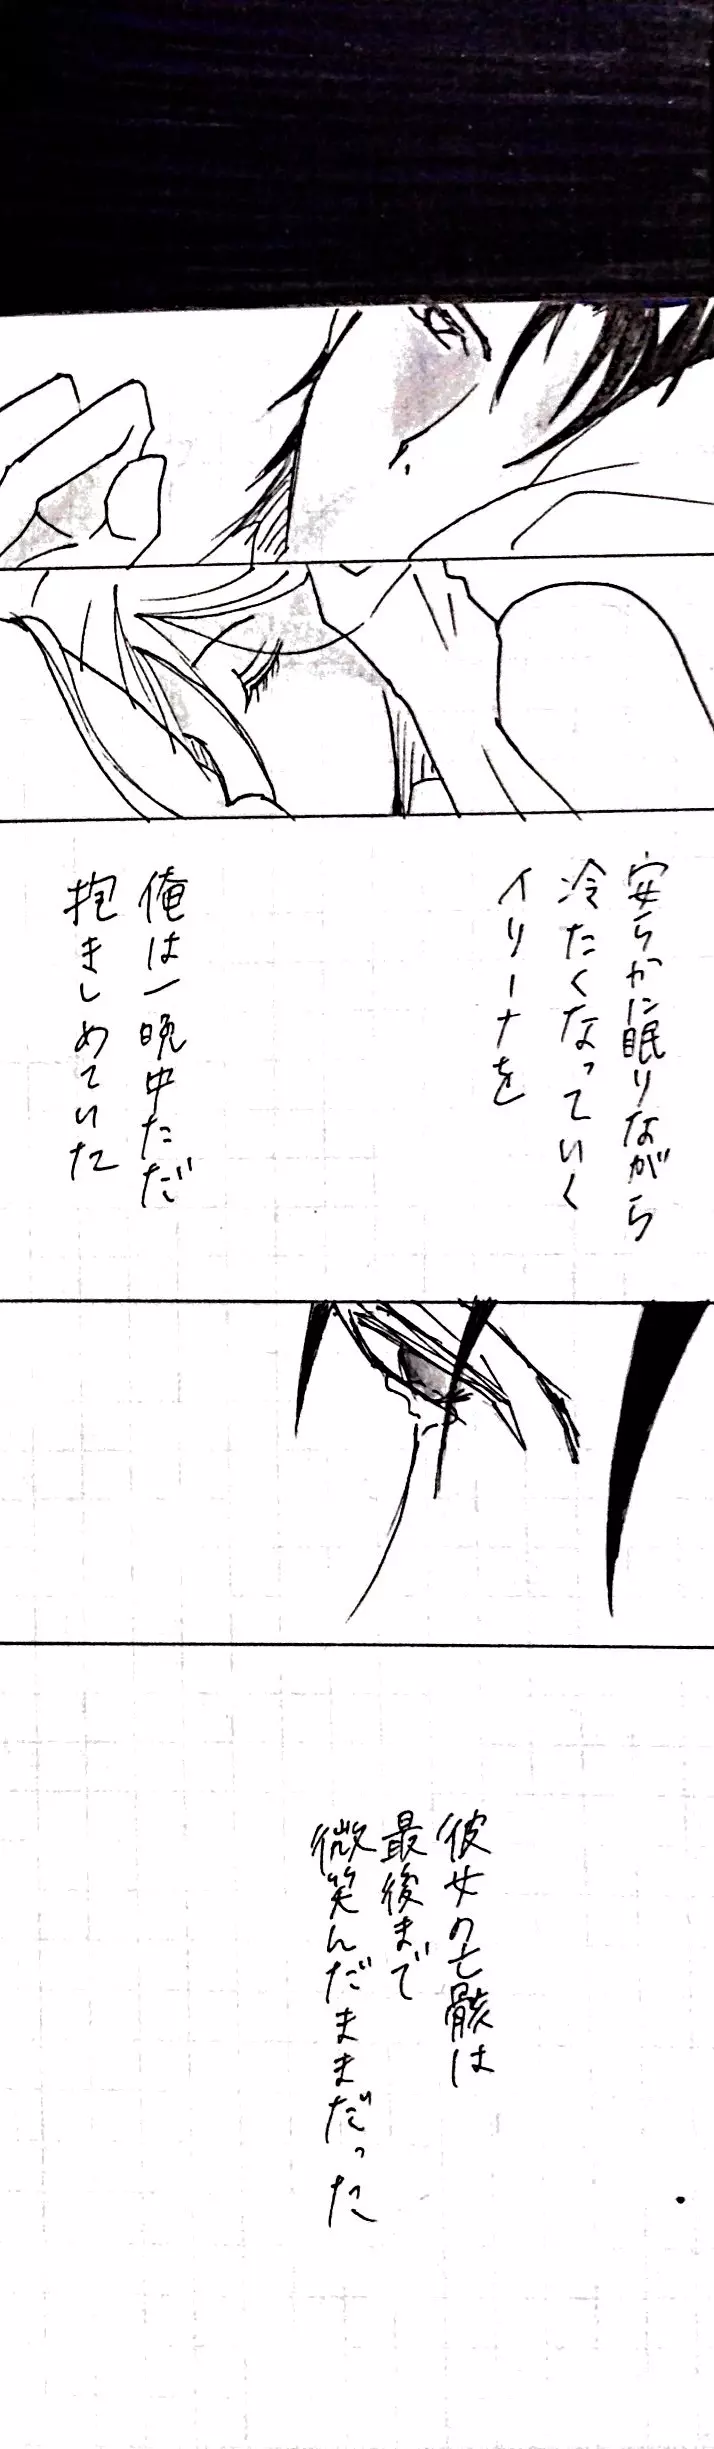 安らかに眠りながら
冷たくなっていく
イリーナを
俺は一晩中ただ
抱きしめていた
彼女の亡骸は
最後まで
微笑んだままだった